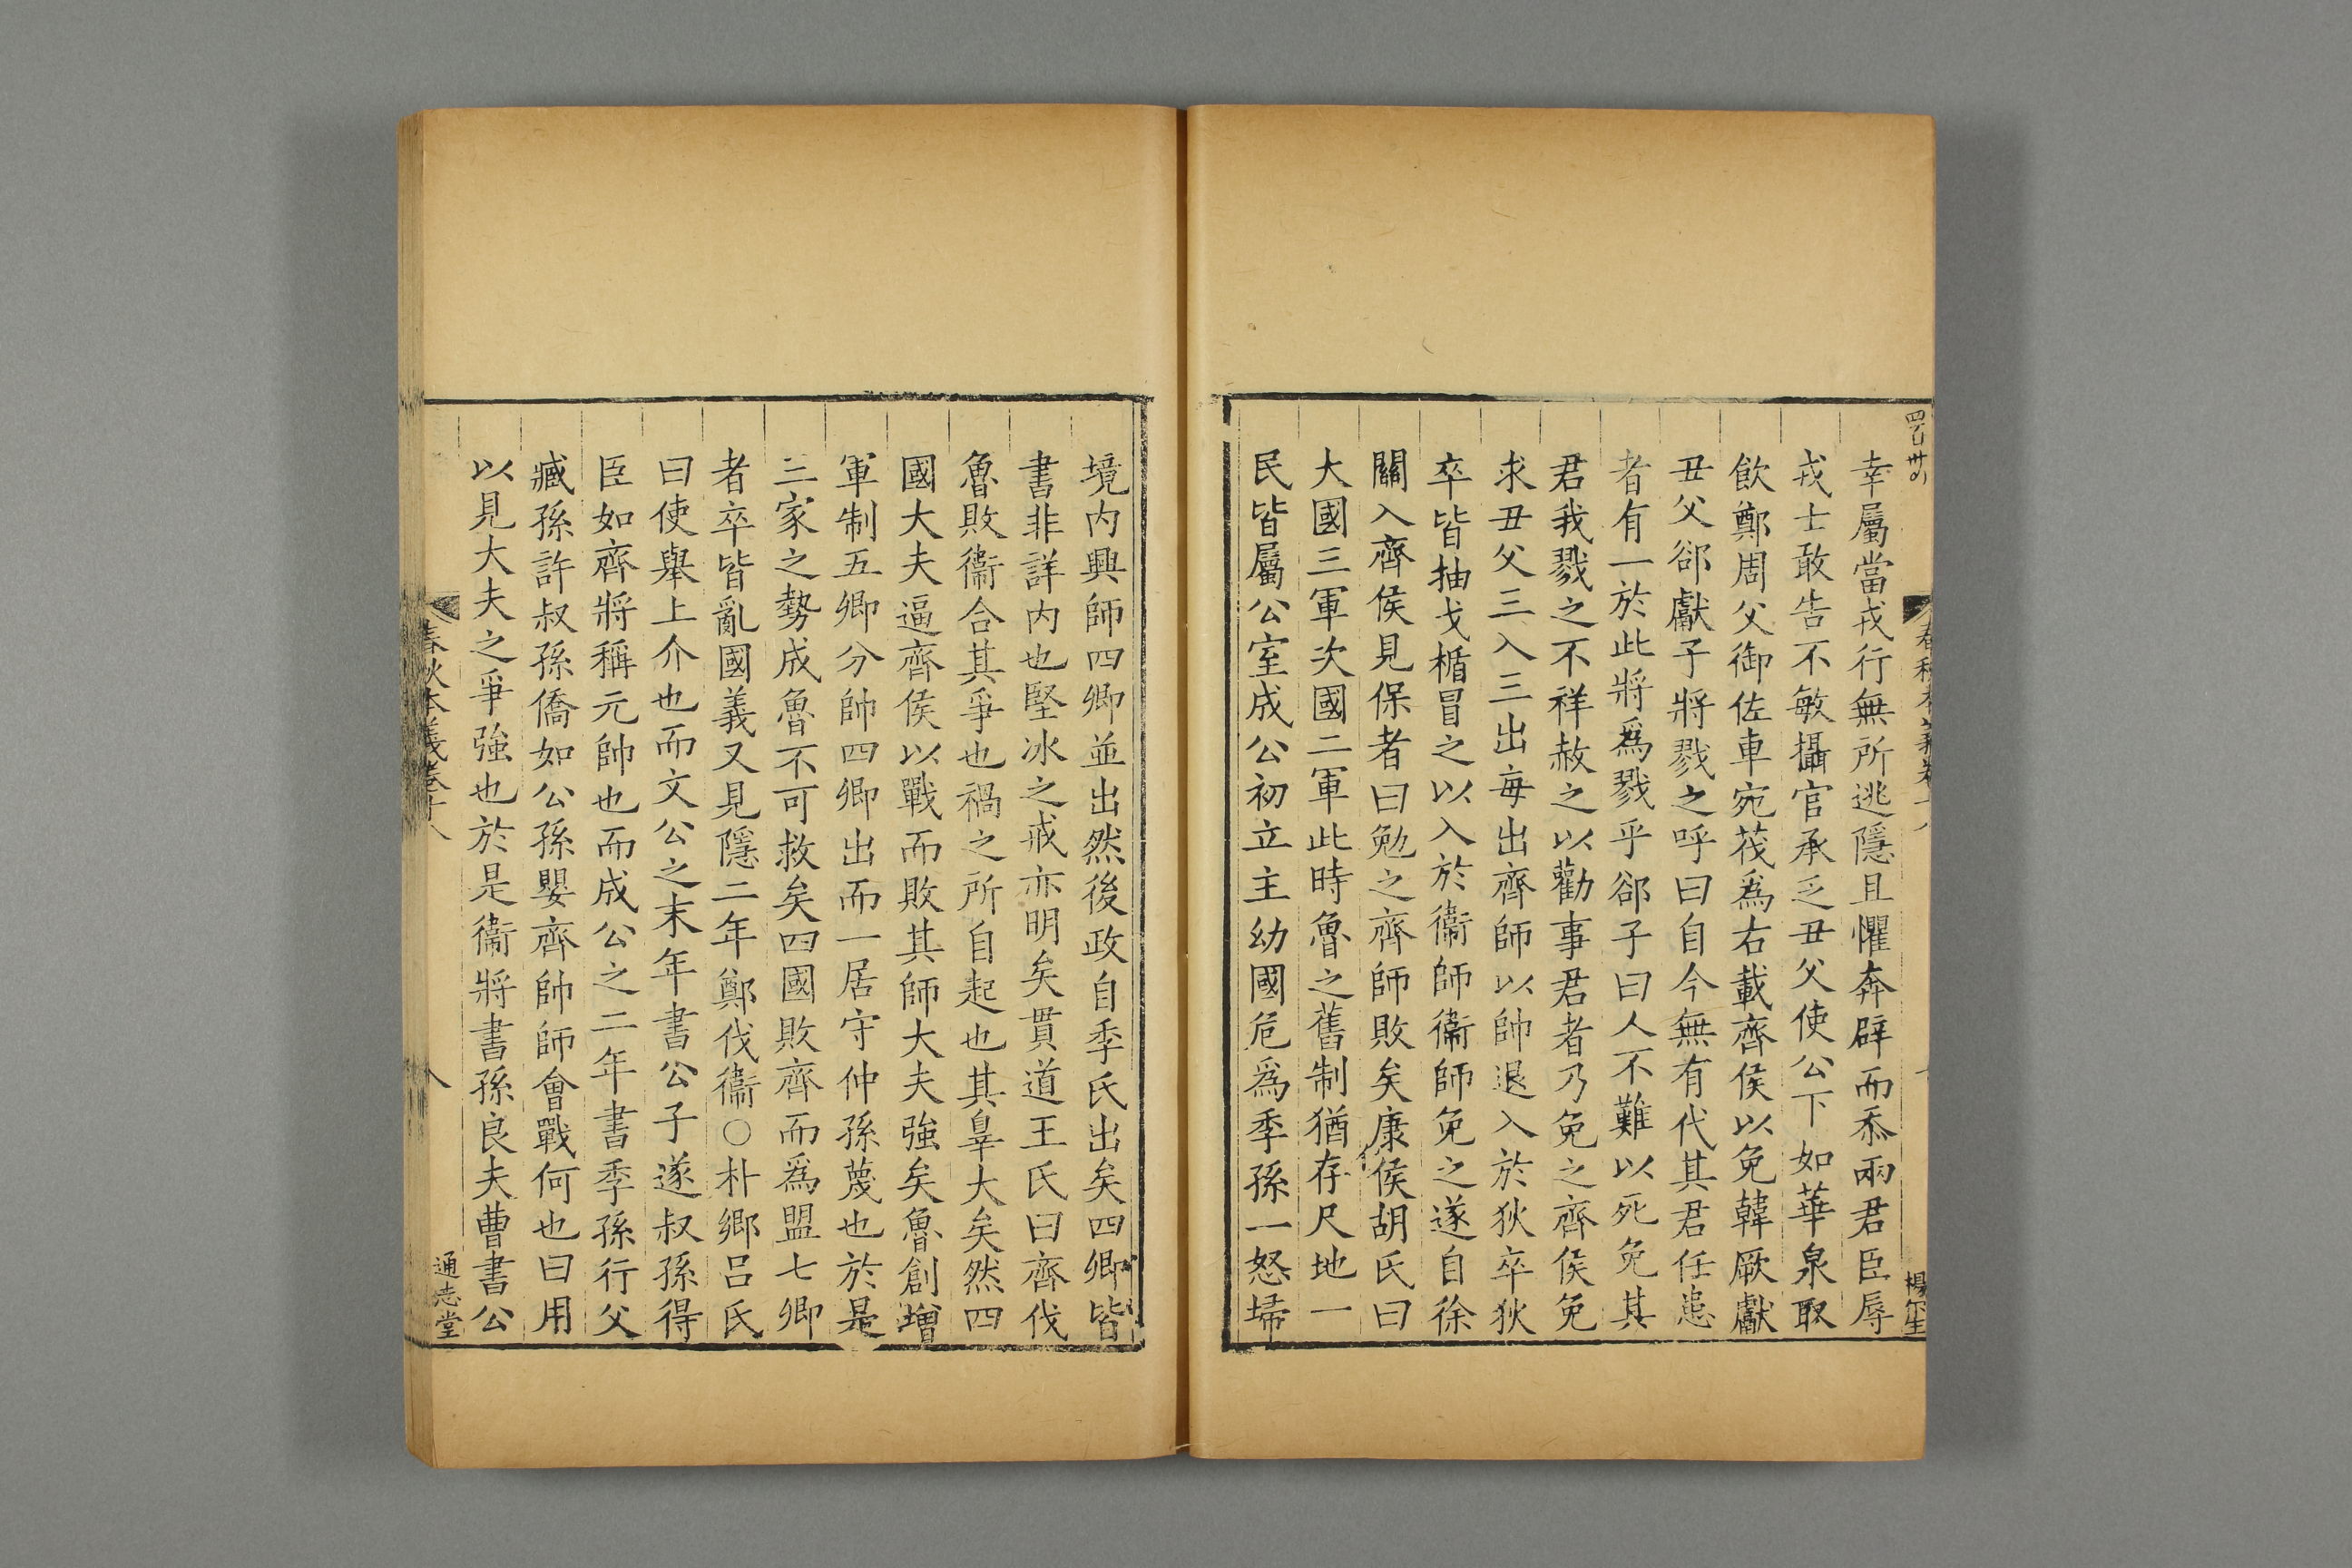 幸屬當戎行無所逃隱且懼奔辟而忝兩君臣辱
戎士敢告不敏攝官承乏丑父使公下如華泉取
飲鄭周父御佐車宛茷爲右載齊侯以免韓厥獻
丑父郤獻子將戮之呼曰自今無有代其君任患
者有一於此將爲戮乎郤子曰人不難以死免其
君我戮之不祥赦之以勸事君者乃免之齊侯免
求丑父三入三出每出齊師以帥退入於狄卒狄
卒皆抽戈楯冒之以入於衞師衞師免之遂自徐
關入齊侯見保者曰勉之齊師敗矣康侯胡氏曰
大國三軍次國二軍此時魯之舊制猶存尺地一
民皆屬公室成公初立主幼國危爲季孫一怒埽
境内興師四卿並出然後政自季氏出矣四卿皆
書非詳内也堅冰之戒亦明矣貫道王氏曰齊伐
魯敗衞合其爭也禍之所自起也其辠大矣然四
國大夫逼齊侯以戰而敗其師大夫強矣魯創增
軍制五卿分帥四卿出而一居守仲孫蔑也於是
三家之勢成魯不可救矣四國敗齊而爲盟七卿
者卒皆亂國義又見隱二年鄭伐衞○朴鄉呂氏
曰使舉上介也而文公之末年書公子遂叔孫得
臣如齊將稱元帥也而成公之二年書季孫行父
臧孫許叔孫僑如公孫嬰齊帥師會戰何也曰用
以見大夫之爭強也於是衞將書孫良夫曹書公
春秋本義卷十八
八
通志堂